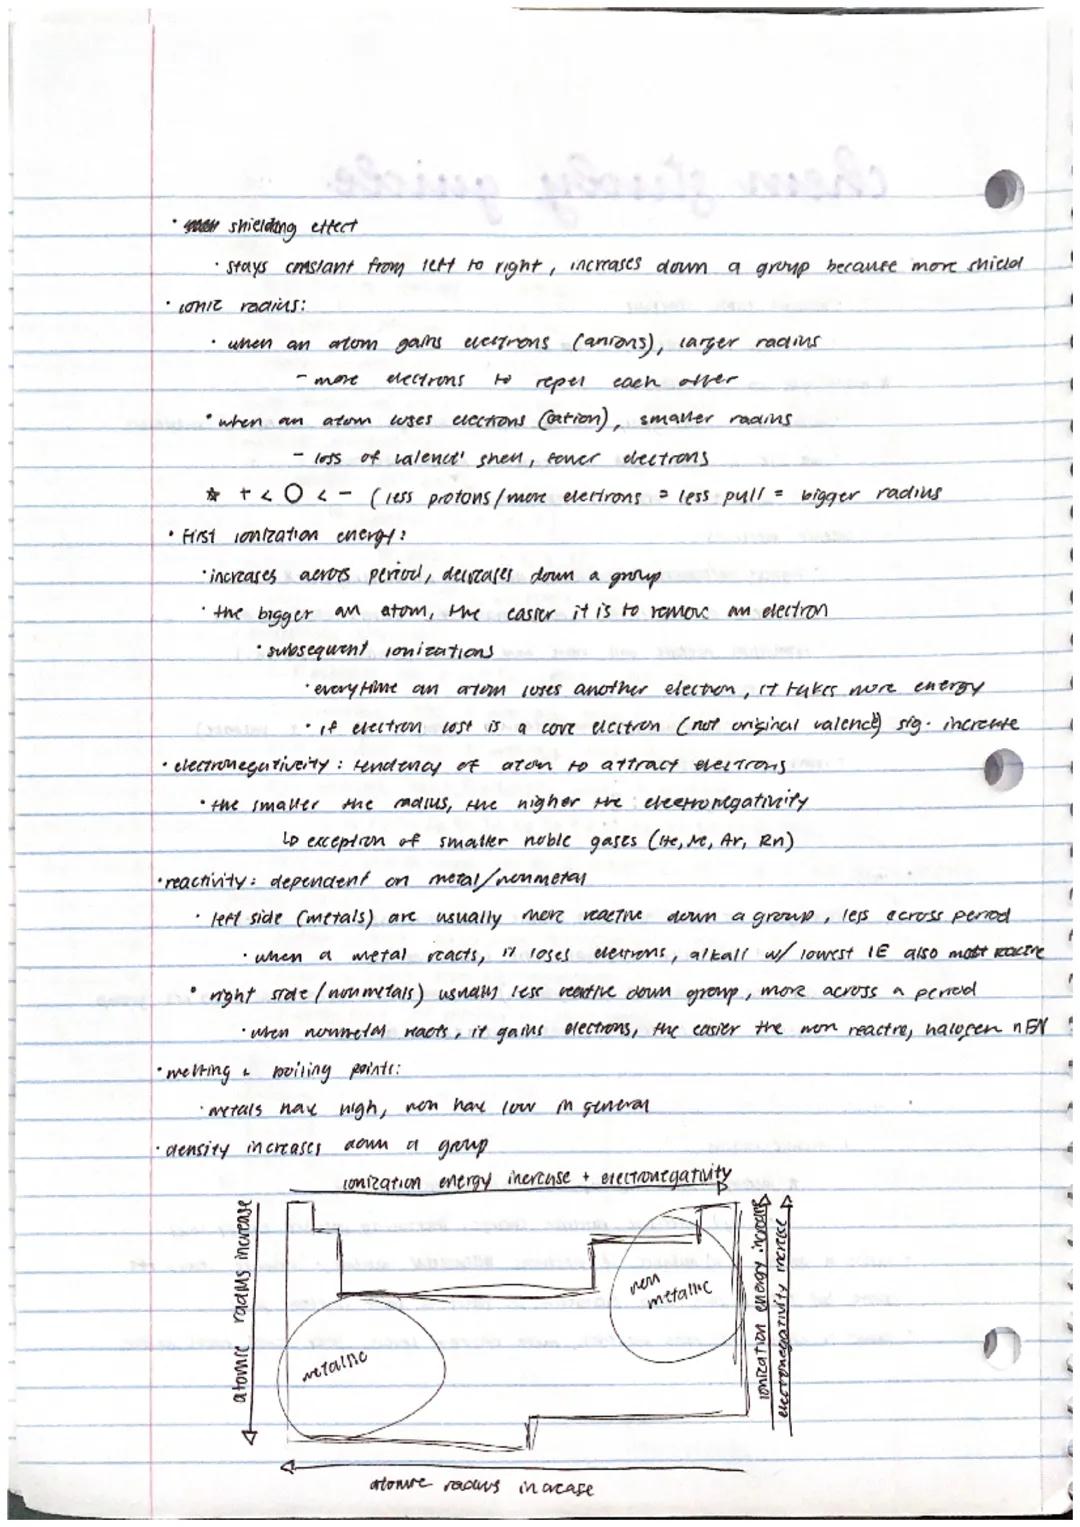 · shielding effect
· stays constant from left to right, increases down a group because more shield
· ionic radius:
· when an atom gains electrons (anions), larger radius
- more electrons to repel each other
· when an atom loses electrons (cation), smaller radius
- loss of valence shell, fewer electrons
☆ + < O < - (less protons/more electrons = less pull = bigger radius
· First ionization energy:
· increases across period, decreases down a group
· the bigger an atom, the easier it is to remove an electron
· subsequent ionizations
· everytime an atom loses another electron, it takes more energy
· if electron lost is a core electron (not original valence) sig. increase
· electronegativity: tendency of atom to attract electrons
· the smaller the radius, the higher the electronegativity
↳ exception of smaller noble gases (He, Ne, Ar, Rn)
· reactivity: dependent on metal/nonmetal
· left side (metals) are usually more reactive down a group, less across period
· when a metal reacts, it loses electrons, alkali w/ lowest IE also most reactive
· right side (nonmetals) usually less reactive down group, more across a period
· when nonmetal reacts, it gains electrons, the easier the more reactive, halogen
· melting & boiling points:
· metals have high, non have low in general
· density increases down a group
ionization energy increase + electronegativity
atomic radius increase
non metallic
metallic
ionization energy increase
electronegativity increase
atomic radius increase